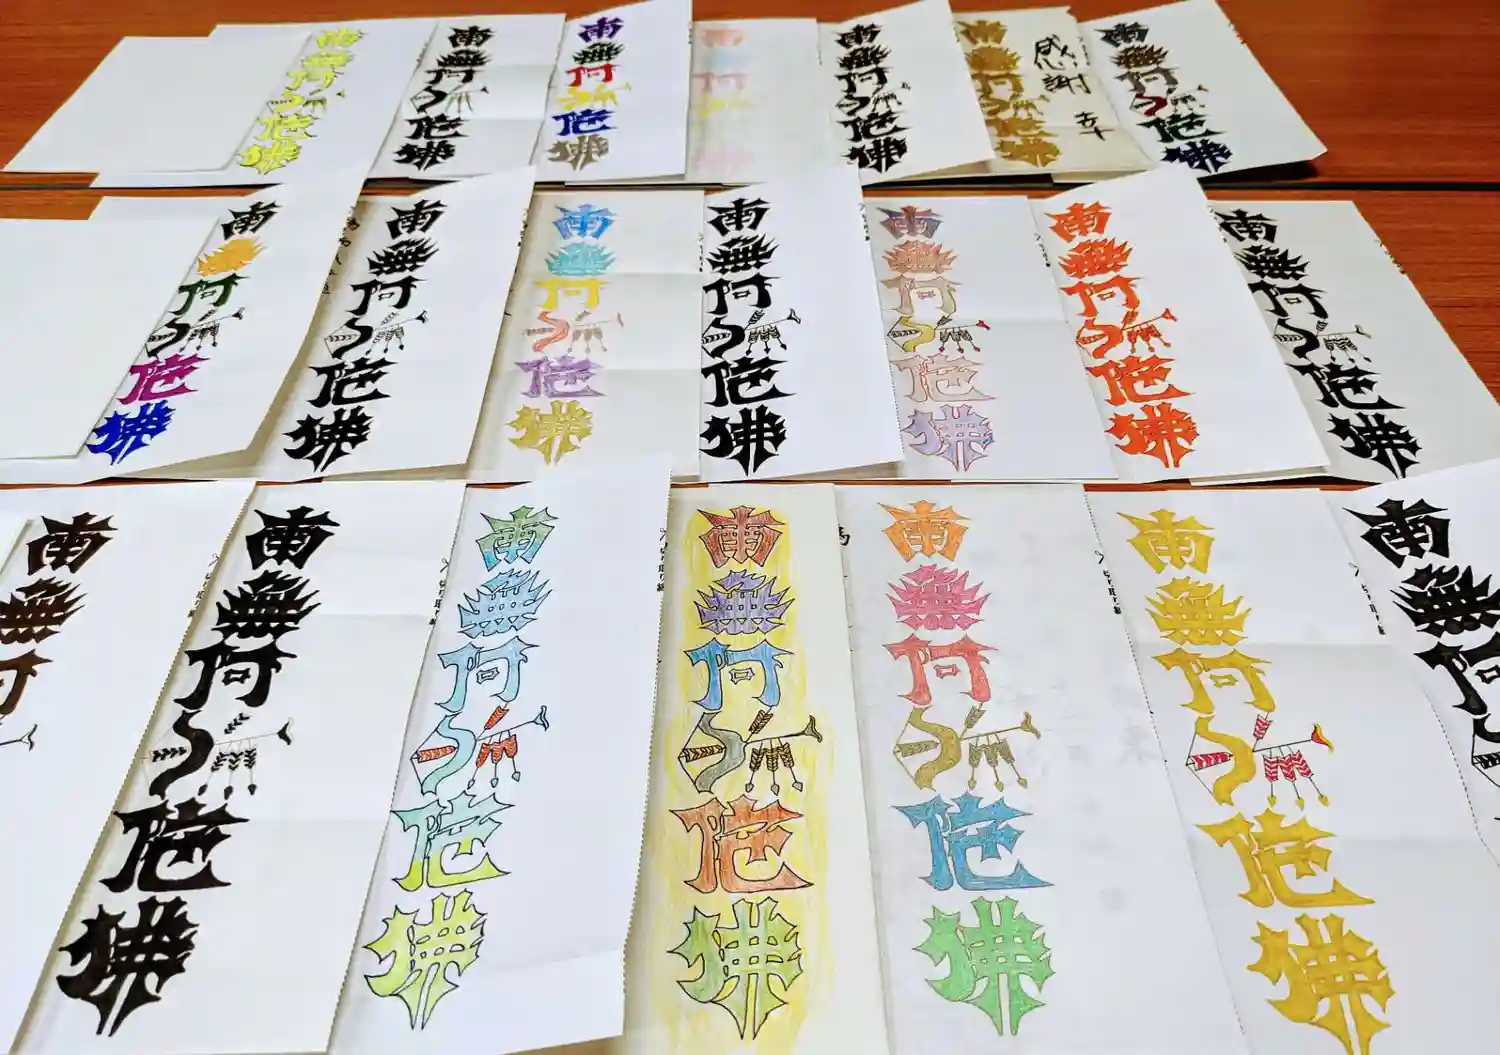 南無阿弥陀佛
南無阿弥陀佛
南無阿弥陀佛
南無阿弥陀佛
南無阿弥陀佛
南無阿弥陀佛
感謝
南無阿弥陀佛
南無阿弥陀佛
南無阿弥陀佛
南無阿弥陀佛
南無阿弥陀佛
南無阿弥陀佛
南無阿弥陀佛
南無阿弥陀佛
南無阿
南無阿弥陀佛
南無阿弥陀佛
南無阿弥陀佛
南無阿弥陀佛
南無阿弥陀佛
南無阿